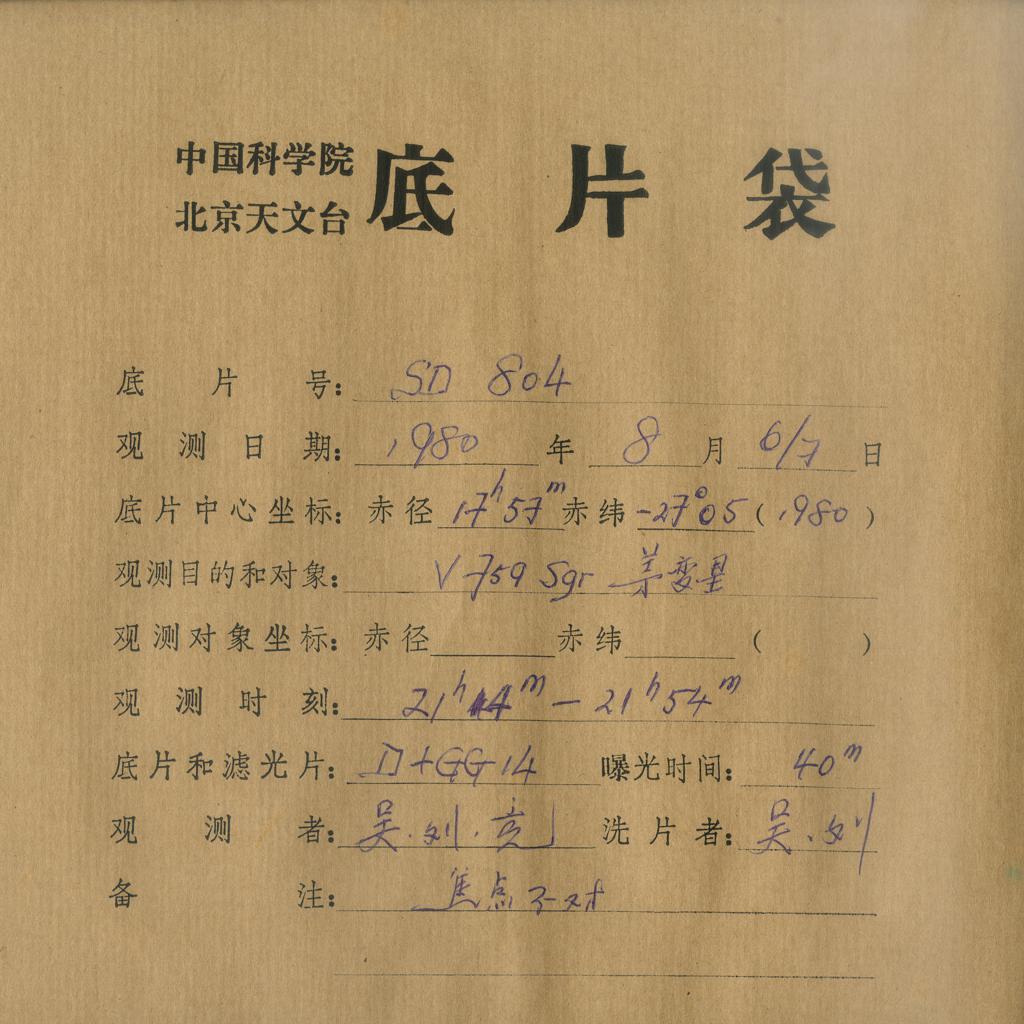 中国科学院
北京天文台
底片袋
底片号: SD 804
观测日期: 1980年8月6/7日
底片中心坐标: 赤径 17ʰ57ᵐ 赤纬 -27°05 (1980)
观测目的和对象: V759 Sgr 变星
观测对象坐标: 赤径 赤纬 ( )
观测时刻: 21ʰ14ᵐ — 21ʰ54ᵐ
底片和滤光片: D+GG14 曝光时间: 40ᵐ
观测者: 吴.刘.竞 洗片者: 吴.刘
备注: 焦点不对